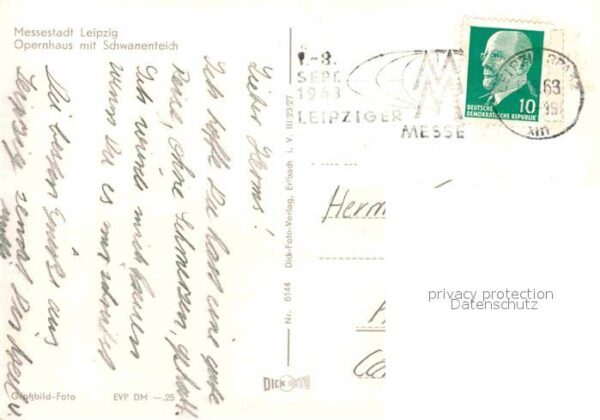 Messestadt Leipzig
Opernhaus mit Schwanenteich
1.-8.
SEPT.
1963
LEIPZIGER
MESSE
MM
DEUTSCHE
DEMOKRATISCHE REPUBLIK
10
63
XIII
Lieber Herms!
Ich hoffe Du hast eine gute
Reise, ohne Schmerzen, gehabt.
Ich würde mich freuen
wenn Du es mir schreibst
Die besten Grüße aus
Leipzig sendet Dir
Nr. 6144 Dick-Foto-Verlag, Erlbach i. V. III 23 27
Herm
privacy protection
Datenschutz
DICK FOTO
Großbild-Foto
EVP DM —.25